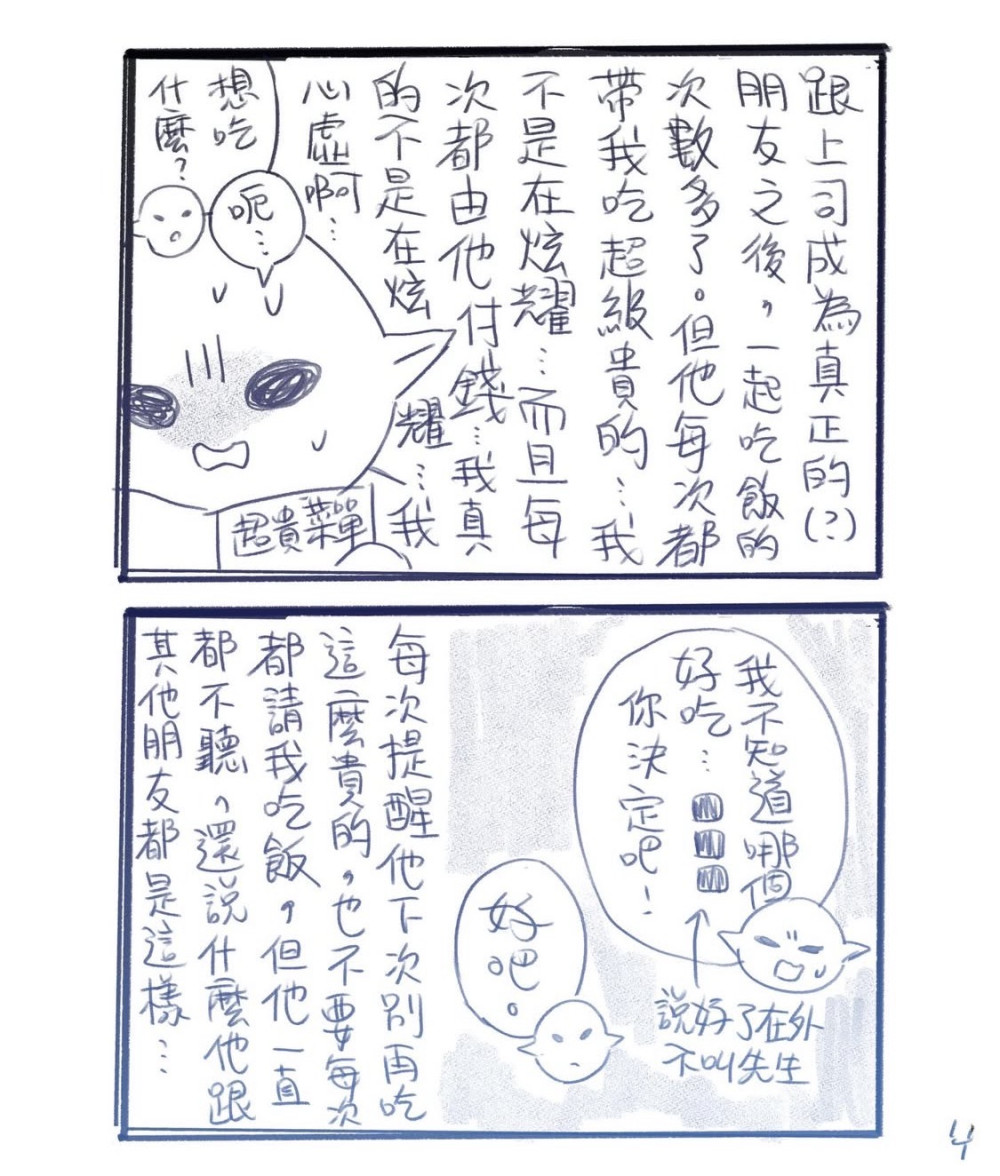 跟上司成為真正的(?)
朋友之後，一起吃飯的
次數多了。但他每次都
帶我吃超級貴的…我
不是在炫耀…而且每
次都由他付錢…我真
的不是在炫耀…我
心虛啊…
想吃
什麼？
呃…
超貴菜單
我不知道哪個
好吃…
你決定吧！
說好了在外
不叫先生
好吧。
每次提醒他下次別再吃
這麼貴的，也不要每次
都請我吃飯，但他一直
都不聽，還說什麼他跟
其他朋友都是這樣…
4